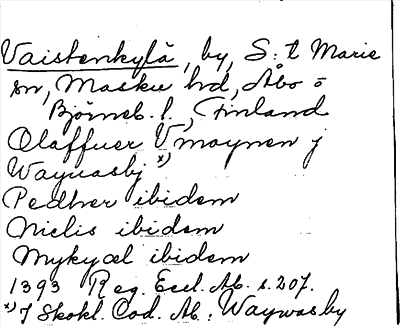 Vaistenkylä, by, S:t Marie
sn, Masku hd, Åbo o
Björneb. l., Finland
Olaffuer Vmoynen j
Wayuasbj x)
Pedher ibidem
Nielis ibidem
Mykyæl ibidem
1393 Reg. Eccl. Ab. s. 207.
x) J Skokl. Cod. Ab.: Waywasby